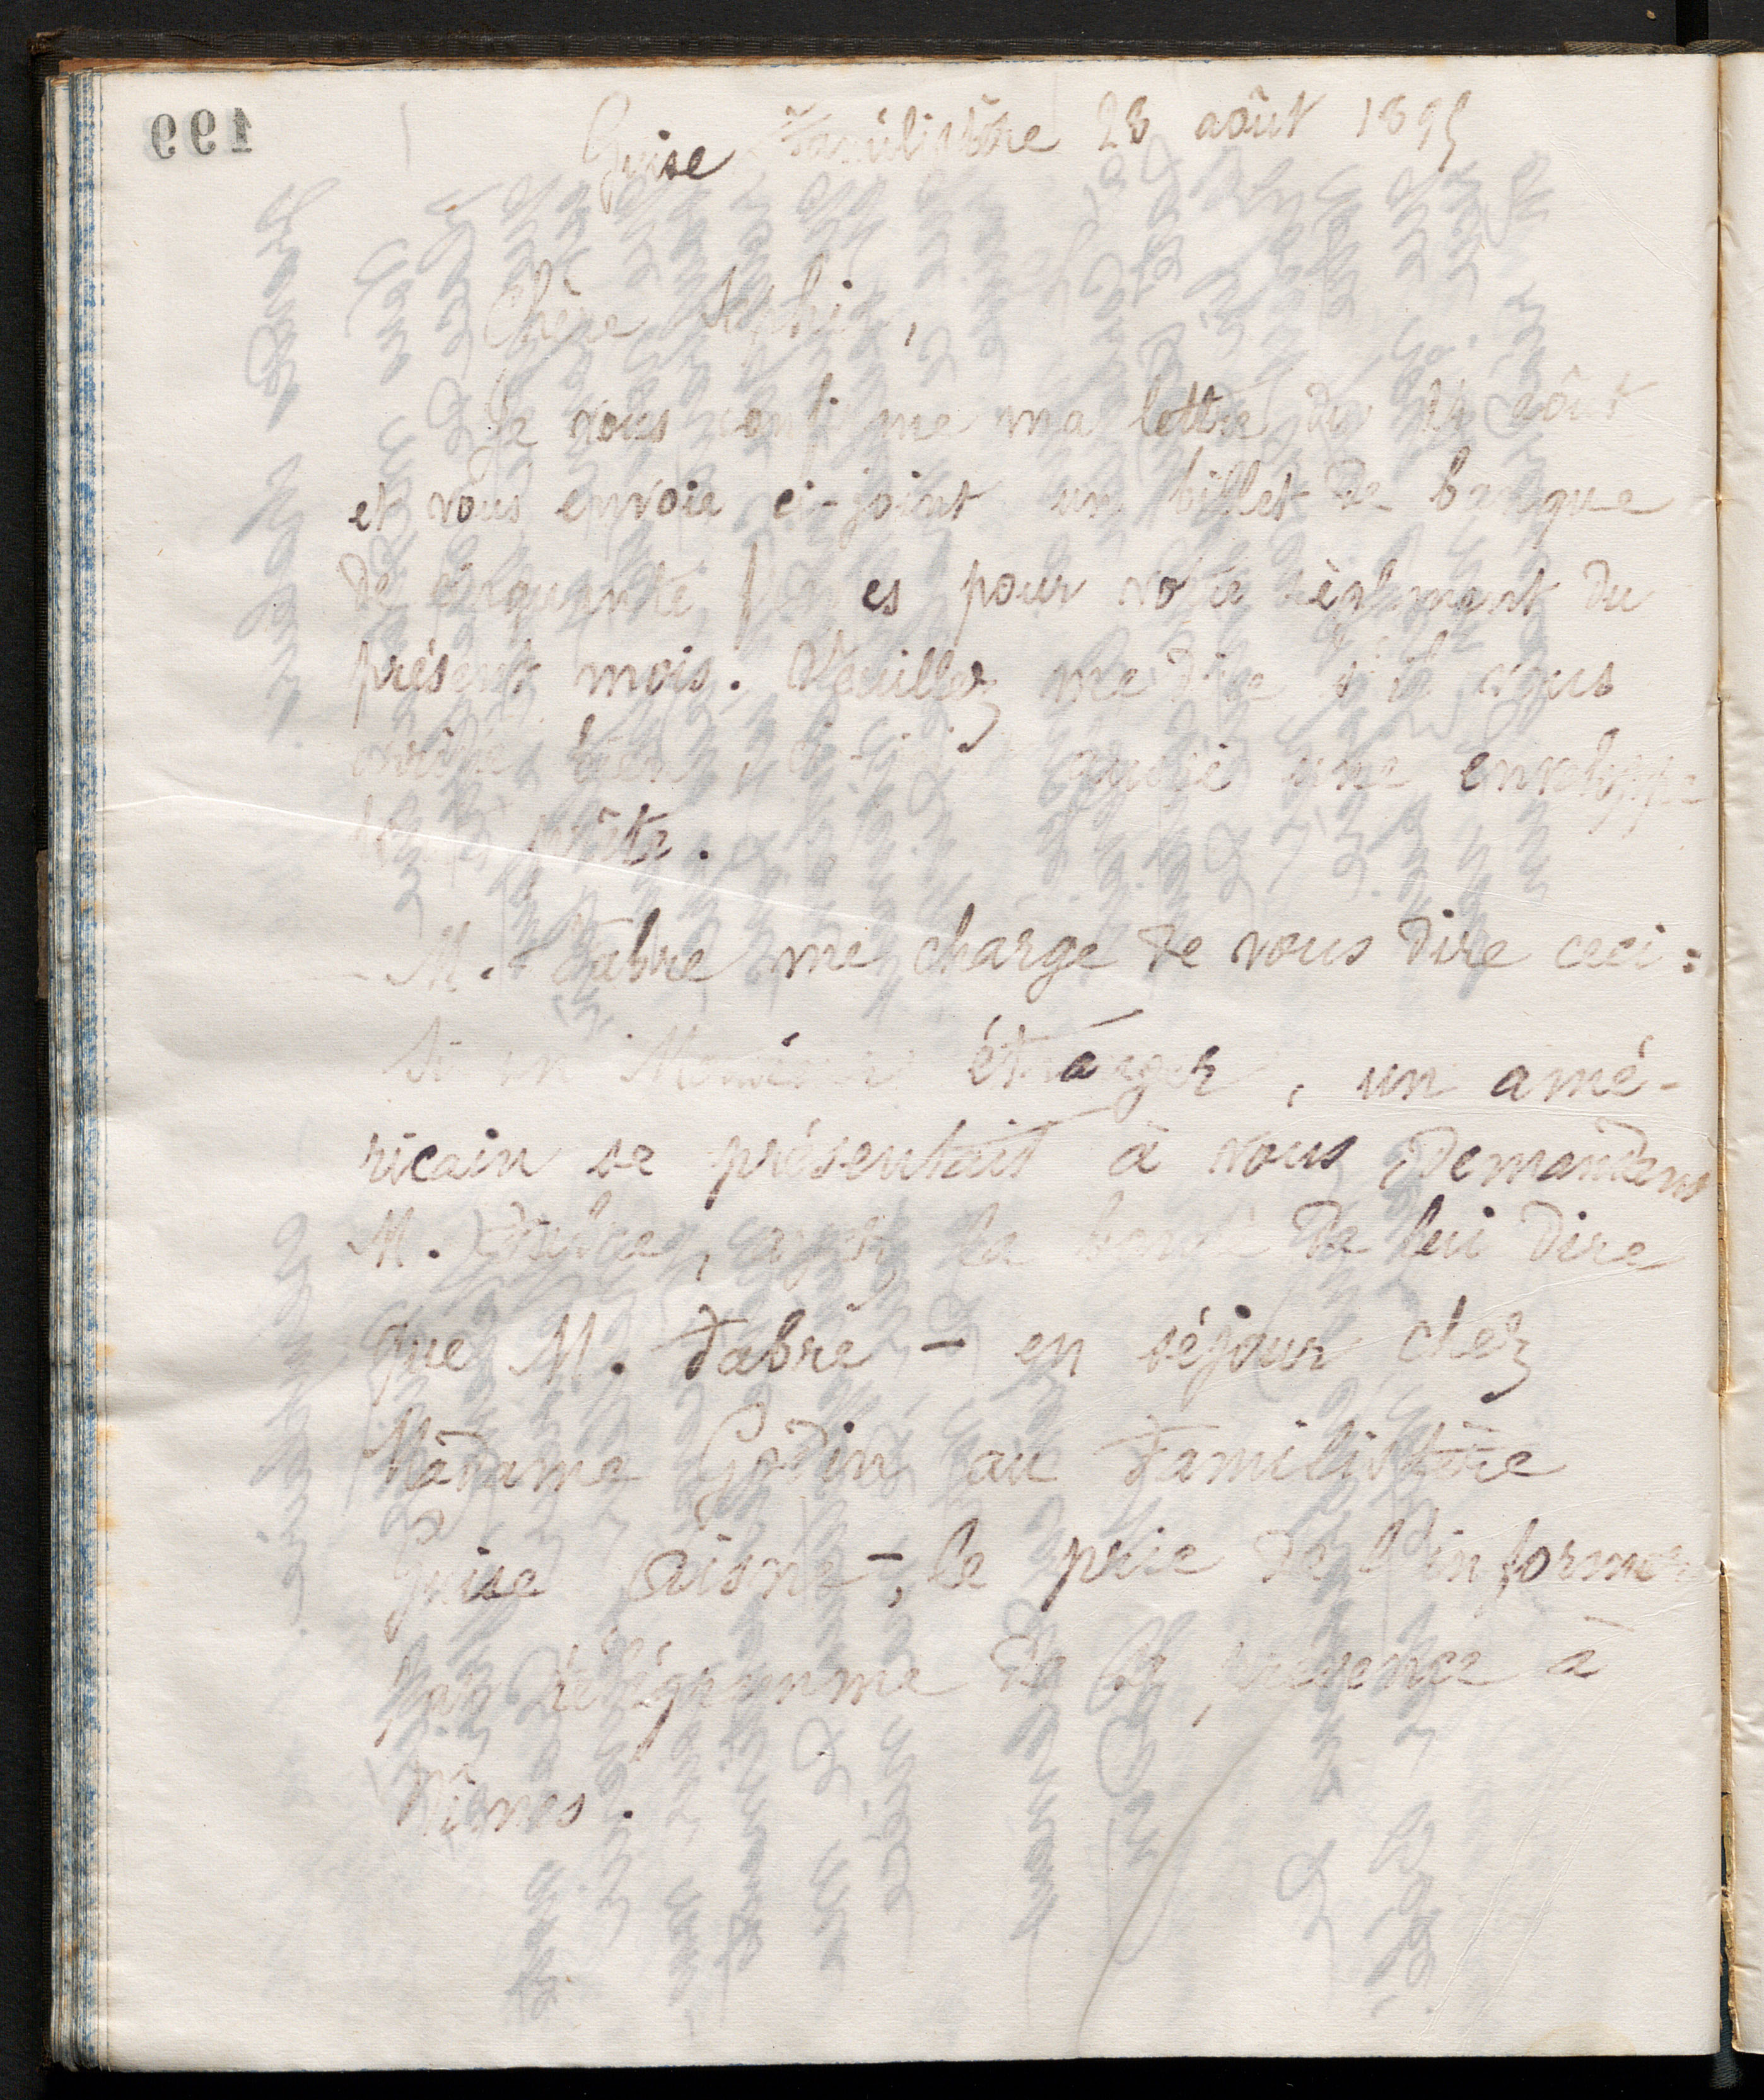 199
Guise Familistère 28 août 1895
Chère Sophie,
Je vous confirme ma lettre du août
et vous envoie ci-joint un billet de banque
de cinquante es pour votre règlement du
présent mois. Veuillez me dire s'il vous
arrive bien, ci-joint aussi une enveloppe
toute prête.
M. Fabre me charge de vous dire ceci :
Si un Monsieur étranger, un amé-
ricain se présentait à vous demandant
M. Fabre, ayez la bonté de lui dire
que M. Fabre - en séjour chez
Madame Godin au Familistère
Guise Aisne -, le prie de l'informer
par télégramme de sa présence à
Nîmes.